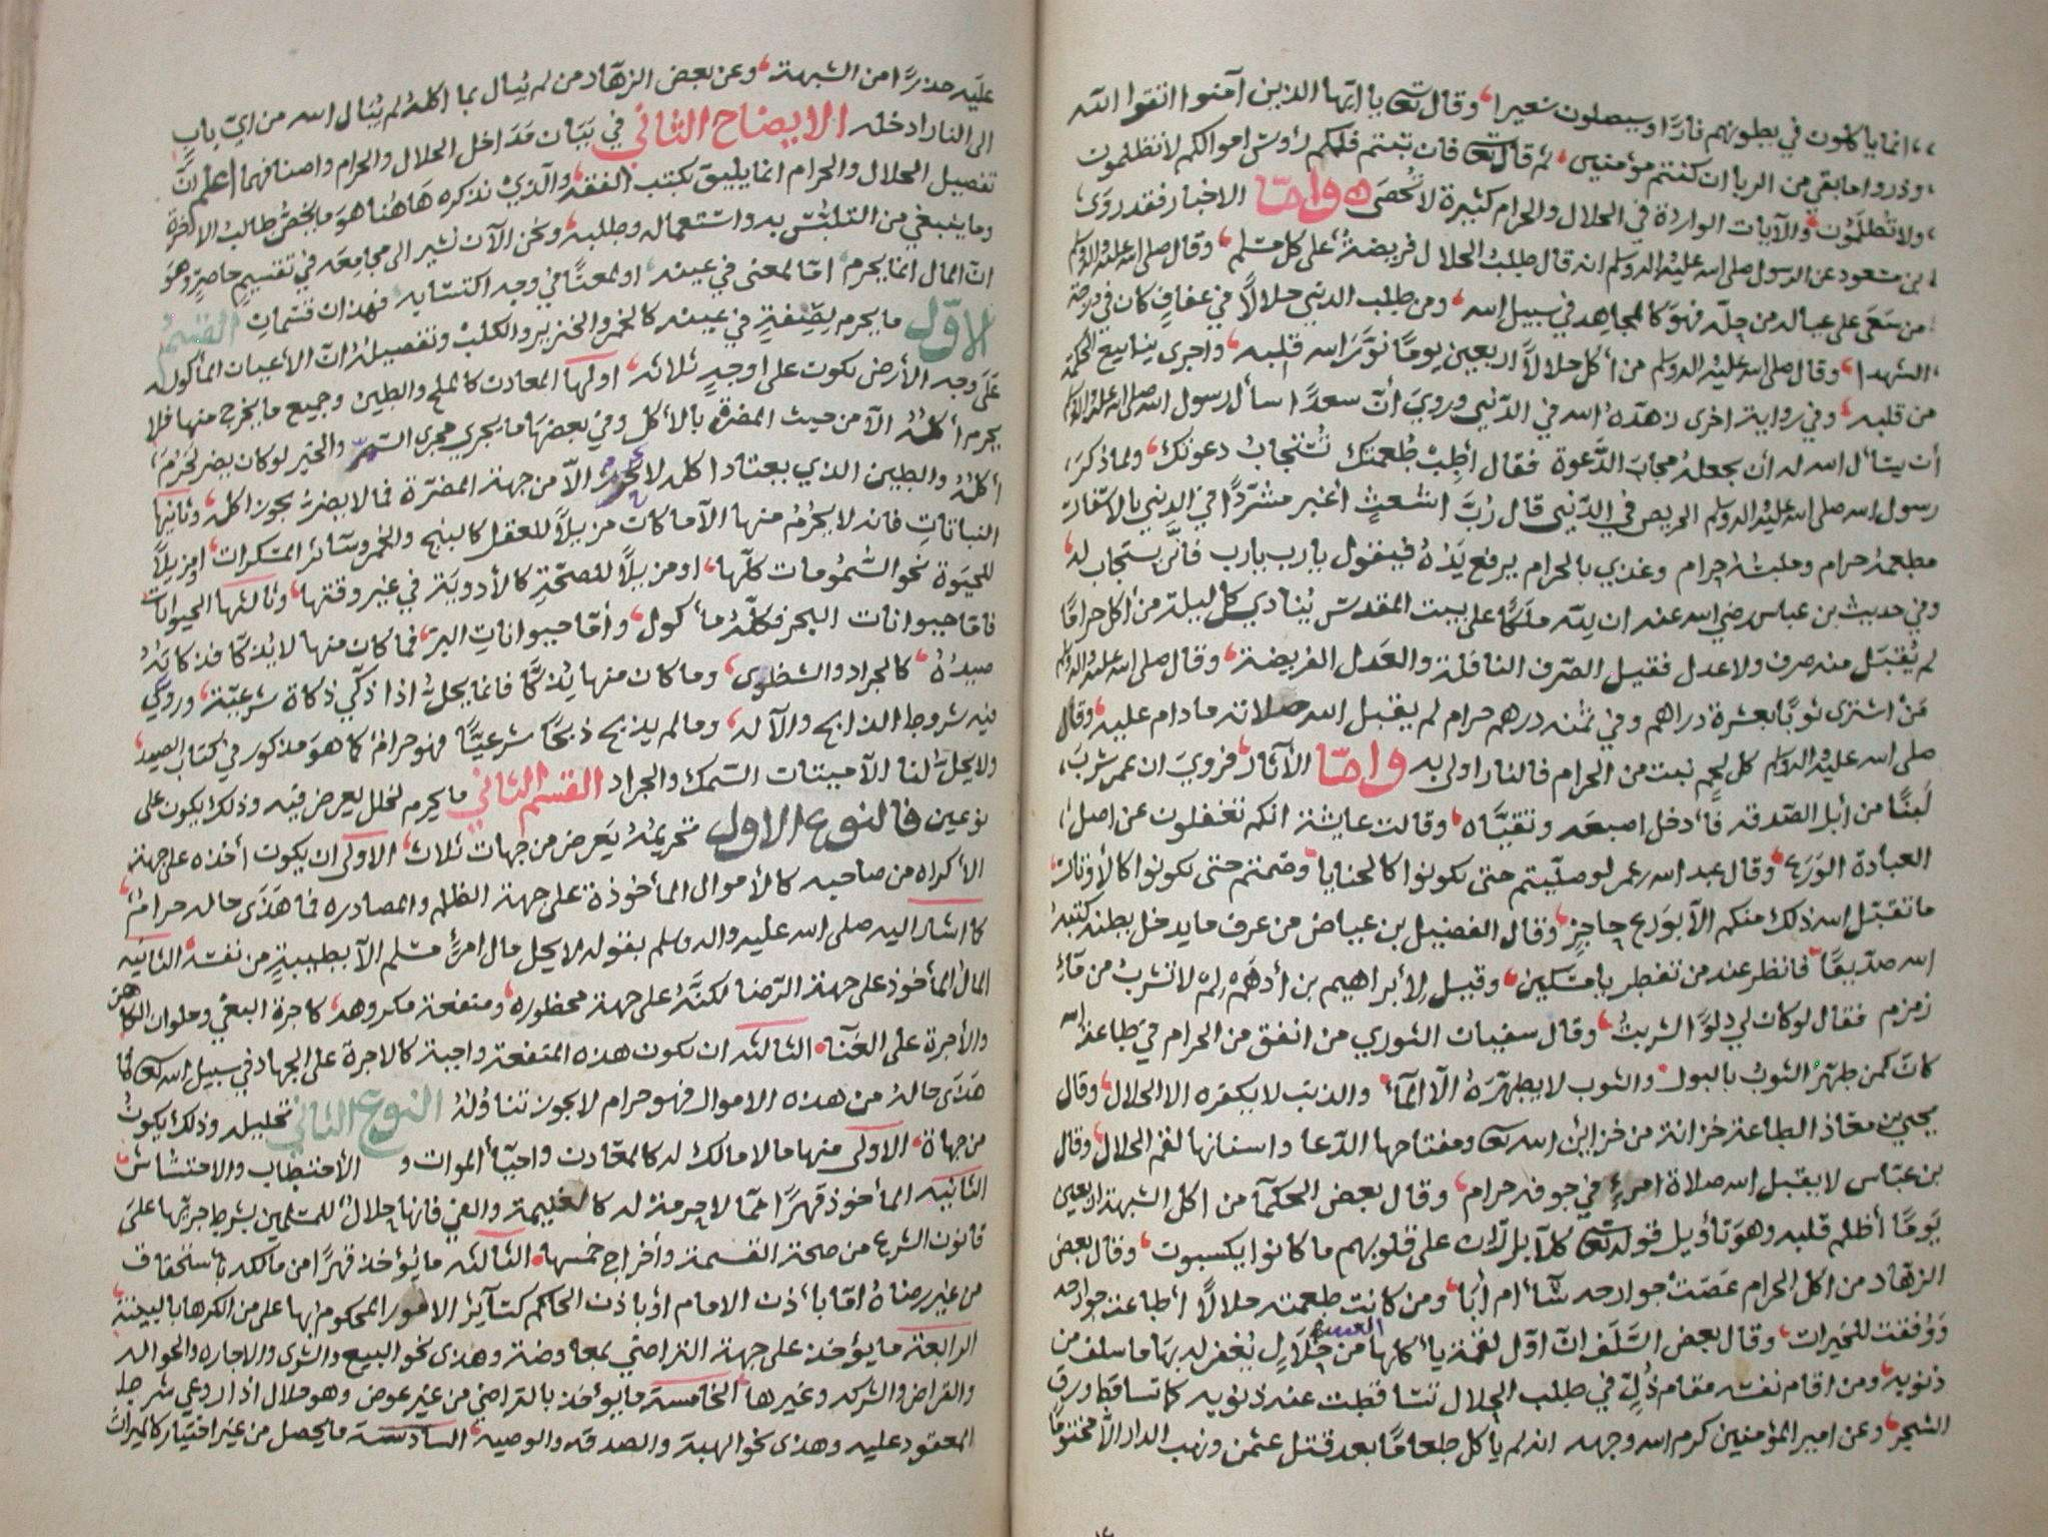 انما ياكلون في بطونهم نارا وسيصلون سعيرا وقال تعالى يا ايها الذين آمنوا اتقوا الله
وذروا ما بقى من الربا ان كنتم مؤمنين ثم قال تعالى فان تبتم فلكم رؤس اموالكم لا تظلمون
ولا تظلمون والآيات الواردة في الحلال والحرام كثيرة لا تحصى واما الاخبار فقد روى
بن مسعود عن الرسول صلى الله عليه واله وسلم انه قال طلب الحلال فريضة على كل مسلم وقال صلى الله عليه واله وسلم
من سعى على عياله من حله فهو كالمجاهد في سبيل الله ومن طلب الدنيى حلالا في عفاف كان في درجة
الشهدا وقال صلى الله عليه واله وسلم من أكل حلالا اربعين يوما نور الله قلبه واجرى ينابيع الحكمة
من قلبه وفي رواية اخرى زهده الله في الدنيى وروي أن سعدا سأل رسول الله صلى الله عليه واله وسلم
أن يسأل الله له أن يجعله مجاب الدعوة فقال أطب طعمتك تستجاب دعوتك ولما ذكر
رسول الله صلى الله عليه واله وسلم الحريص في الدنيى قال رب اشعث أغبر مشردا في الدنيى بالاسفار
مطعمه حرام وملبسه حرام وغذي بالحرام يرفع يده فيقول يارب يارب فانى يستجاب له
وفي حديث بن عباس رضي الله عنه ان لله ملكا على بيت المقدس ينادي كل ليلة من أكل حراما
لم يقبل منه صرف ولا عدل فقيل الصرف النافلة والعدل الفريضة وقال صلى الله عليه واله وسلم
من اشترى ثوبا بعشرة دراهم وفي ثمنه درهم حرام لم يقبل الله صلاته مادام عليه وقال
صلى الله عليه واله وسلم كل لحم نبت من الحرام فالنار اولى به واما الآثار فروي ان عمر شرب
لبنا من أبل الصدقة فأدخل اصبعه وتقياه وقالت عايشة انكم تغفلون عن اصل
العبادة الورع وقال عبد الله بن عمر لو صليتم حتى تكونوا كالحنايا وصمتم حتى تكونوا كالأوتار
ما تقبل الله ذلك منكم الا بورع حاجز وقال الفضيل بن عياض من عرف ما يدخل بطنه كتبه
الله صديقا فانظر عند من تفطر يا مسكين وقيل لأبراهيم بن أدهم لم لا تشرب من ماء
زمزم فقال لو كان لي دلوا لشربت وقال سفيان الثوري من انفق من الحرام في طاعة الله
كان كمن طهر الثوب بالبول والثوب لا يطهره الا الماء والذنب لا يكفره الا الحلال وقال
يحيى بن معاذ الطاعة خزانة من خزائن الله تعالى ومفتاحها الدعا واسنانها لقم الحلال وقال
بن عباس لا يقبل الله صلاة امرء في جوفه حرام وقال بعض الحكمآ من اكل الشبهة اربعين
يوما أظلم قلبه وهو تأويل قوله تعالى كلا بل ران على قلوبهم ما كانوا يكسبون وقال بعض
الزهاد من اكل الحرام عصت جوارحه شآء أم أبا ومن كانت طعمته حلالا أطاعته جوارحه
ووفقت للخيرات وقال بعض السلف ان اول لقمة يأكلها من حلال يغفر له بها ما سلف من
ذنوبه ومن اقام نفسه مقام ذل في طلب الحلال تساقطت عنه ذنوبه كما تساقط ورق
الشجر وعن امير المؤمنين كرم الله وجهه انه لم يأكل طعاما بعد قتل عثمن ونهب الدار الا مختوما
عليه حذرا من الشبهة وعن بعض الزهاد من لم يبال بما اكله لم يبال الله من اي باب
الى النار ادخله الايضاح الثاني في بيان مداخل الحلال والحرام واصنافهما اعلم ان
تفصيل الحلال والحرام انما يليق بكتب الفقه والذي نذكره هاهنا هو ما يخص طالب الاخرة
وما ينبغي من التلبس به واستعماله وطلبه ونحن الآن نشير الى مجامعه في تقسيم حاصر وهو
ان المال انما يحرم اما لمعنى في عينه او لمعنا في وجه اكتسابه فهذان قسمان القسم
الاول ما يحرم لصفة في عينه كالخمر والخنزير والكلب وتفصيله ان الأعيان المأكوله
على وجه الأرض تكون على اوجه ثلاثه اولها المعادن كالملح والطين وجميع ما يخرج منها فلا
يحرم أكله الا من حيث المضرة بالأكل وفي بعضها ما يجري مجرى السم والخبز لو كان يضر لحرم
أكله والطين الذي يعتاد اكله لا يحرم الا من جهة المضرة فما لا يضر يجوز اكله وثانيها
النباتات فانه لا يحرم منها الا ما كان مزيلا للعقل كالبنج والخمر وسائر المسكرات او مزيلا
للحيوة نحو السمومات كلها او مزيلا للصحة كالأدوية في غير وقتها وثالثها الحيوانات
فاما حيوانات البحر فكله مأكول وأما حيوانات البر فما كان منها لا يذكا فذكاته
صيده كالجراد والشظوى وما كان منها يذكا فانما يحل اذا ذكي ذكاة شرعية وروعي
فيه شروط الذابح والآله وما لم يذبح ذبحا شرعيا فهو حرام كما هو مذكور في كتاب الصيد
ولا يحل لنا الا ميتتان السمك والجراد القسم الثاني ما يحرم لخلل يعرض فيه وذلك يكون على
نوعين فالنوع الاول تحريمه يعرض من جهات ثلاث الاولى ان يكون أخذه على جهة
الأكراه من صاحبه كالأموال المأخوذة على جهة الظلم والمصادره فما هذى حاله حرام
كما اشار اليه صلى الله عليه واله وسلم بقوله لا يحل مال امرء مسلم الا بطيبة من نفسه الثانيه
المال المأخوذ على جهة الرضا لكنه على جهة محظوره ومنفعة مكروهه كاجرة البغي وحلوان الكاهن
والأجرة على الغنآء الثالثه ان تكون هذه المنفعة واجبة كالاجرة على الجهاد في سبيل الله تعالى فما
هذى حاله من هذه الاموال فهو حرام لا يجوز تناوله النوع الثاني تحليله وذلك يكون
من جهاة الاولى منها ما لا مالك له كالمعادن واحيآء الموات و الأحتطاب والاحتشاش
الثانيه المأخوذ قهرا مما لا حرمة له كالغنيمة والفي فانها حلال للمسلمين بشرط جريها على
قانون الشرع من صحة القسمة وأخراج خمسها الثالثه ما يؤخذ قهرا من مالكه باستحقاق
من غير رضاه اما بأذن الامام أو باذن الحاكم كسآير الامور المحكوم بها على من انكرها بالبينة
الرابعة ما يؤخذ على جهة التراضي بمعاوضة وهذى نحو البيع والشرى والاجاره والحواله
والقراض والشركه وغيرها الخامسة ما يؤخذ بالتراضي من غير عوض وهو حلال اذا روعي شرط
المعقود عليه وهذى نحو الهبة والصدقه والوصيه السادسة ما يحصل من غير اختيار كالميراث